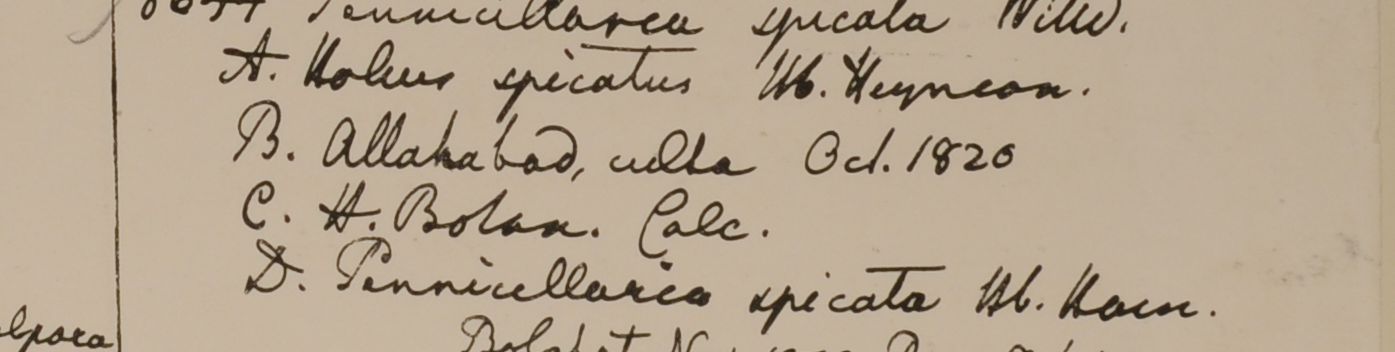 Pennicillarea spicata Willd.
A. Holcus spicatus Hb. Heynean.
B. Allahabad, culta Oct. 1820
C. H. Botan. Calc.
D. Pennicellaria spicata Hb. Ham.